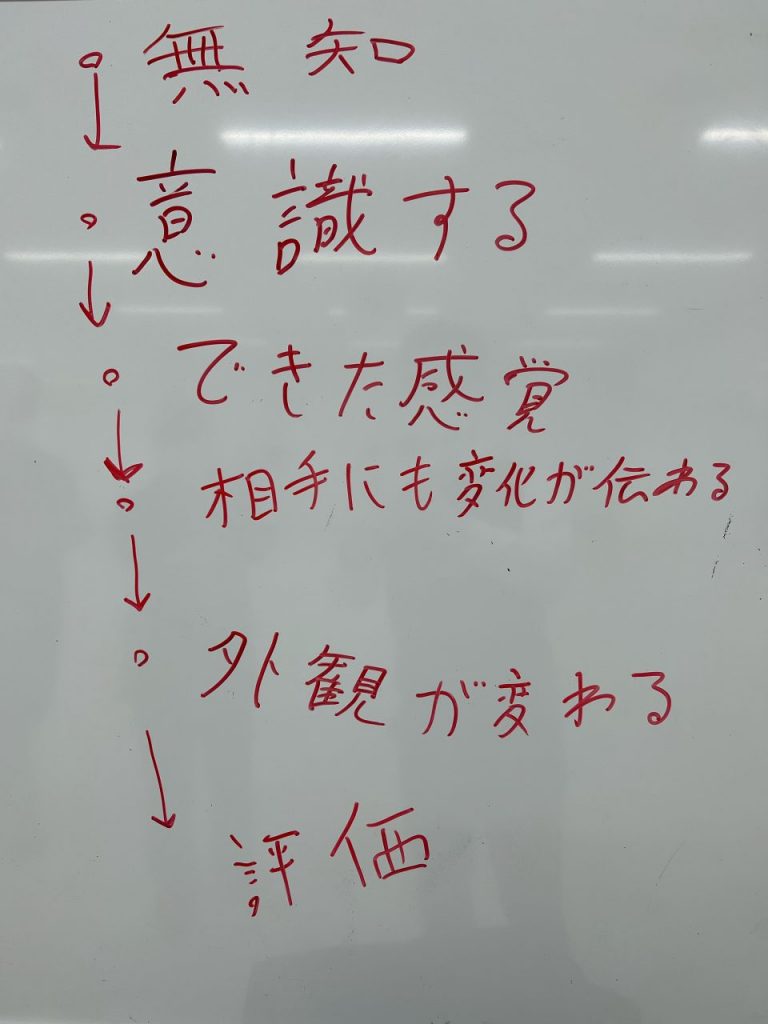 無知
意識する
できた感覚
相手にも変化が伝わる
外観が変わる
評価